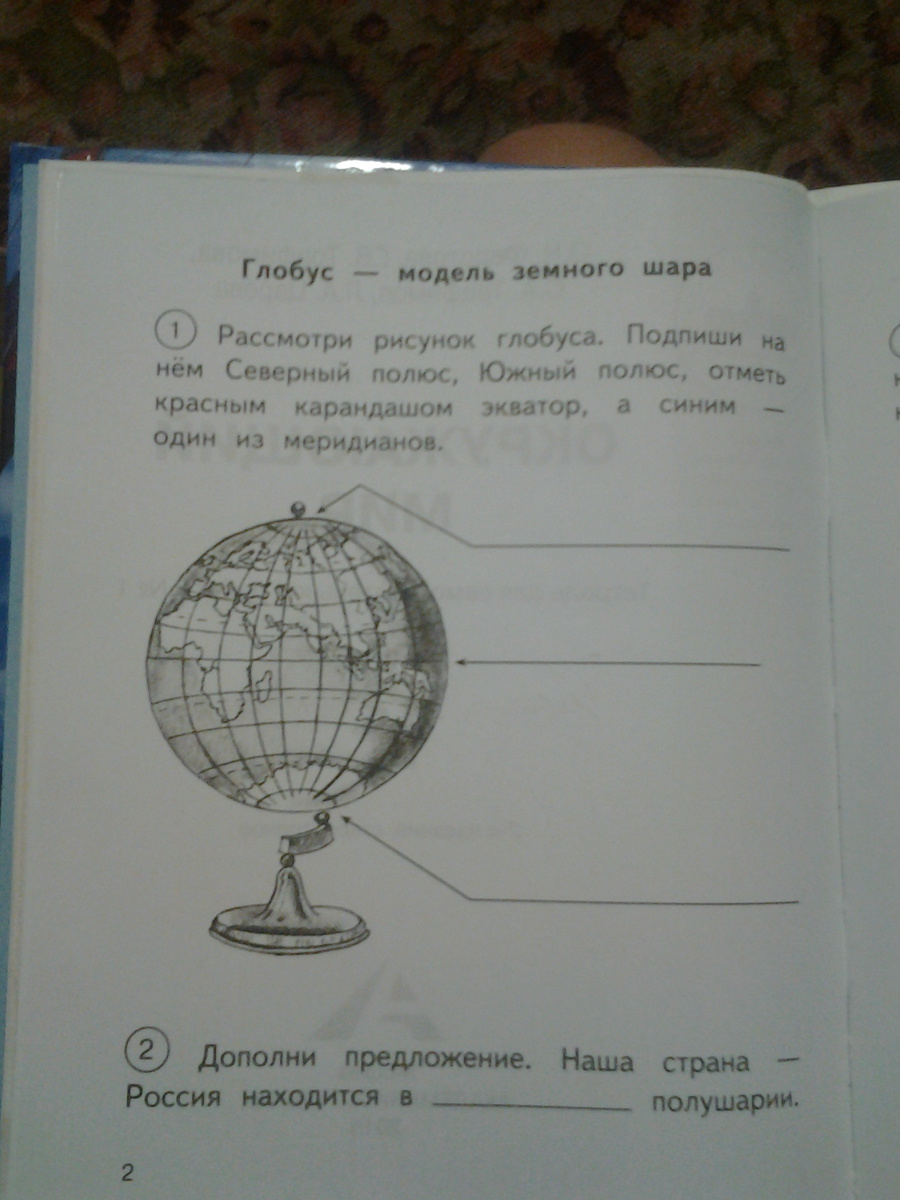 Глобус — модель земного шара
1 Рассмотри рисунок глобуса. Подпиши на
нём Северный полюс, Южный полюс, отметь
красным карандашом экватор, а синим —
один из меридианов.
2 Дополни предложение. Наша страна —
Россия находится в ____________ полушарии.
2